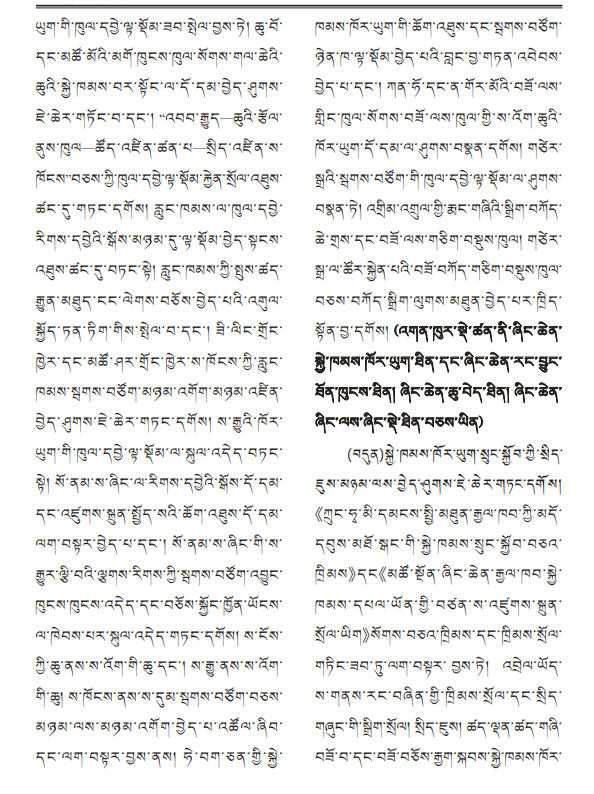 ཡུག་གི་ཁུལ་དབྱེ་ལྟ་སྡོམ་ཟབ་སྤེལ་བྱས་ཏེ། ཆུ་བོ་
དང་མཚོ་མོའི་མགོ་ཁུངས་ཁུལ་སོགས་གལ་ཆེའི་
ཆུའི་སྐྱེ་ཁམས་བར་སྟོང་ལ་དོ་དམ་བྱེད་ཤུགས་
ཇེ་ཆེར་གཏོང་བ་དང་། “འབབ་རྒྱུད—ཆུའི་རྩོལ་
ནུས་ཁུལ—ཚོད་འཛིན་ཚན་པ—སྲིད་འཛིན་ས་
ཁོངས་”བཅས་ཀྱི་ཁུལ་དབྱེ་ལྟ་སྡོམ་རྐྱེན་སྲོལ་འཐུས་
ཚང་དུ་གཏང་དགོས། རླུང་ཁམས་ལ་ཁུལ་དབྱེ་
རིགས་དབྱེའི་སྒོས་མཉམ་དུ་ལྟ་སྡོམ་བྱེད་སྟངས་
འཐུས་ཚང་དུ་བཏང་སྟེ། རླུང་ཁམས་ཀྱི་སྤུས་ཚད་
རྒྱུན་མཐུད་ངང་ལེགས་བཅོས་བྱེད་པའི་འགུལ་
སྐྱོད་ཏན་ཏིག་གིས་སྤེལ་བ་དང་། ཟི་ལིང་གྲོང་
ཁྱེར་དང་མཚོ་ཤར་གྲོང་ཁྱེར་ས་ཁོངས་ཀྱི་རླུང་
ཁམས་སྦགས་བཙོག་མཉམ་འགོག་མཉམ་འཛིན་
བྱེད་ཤུགས་ཇེ་ཆེར་གཏང་དགོས། ས་རྒྱུའི་ཁོར་
ཡུག་གི་ཁུལ་དབྱེ་ལྟ་སྡོམ་ལ་སྐུལ་འདེད་བཏང་
སྟེ། སོ་ནམ་ས་ཞིང་ལ་རིགས་དབྱེའི་སྒོས་དོ་དམ་
དང་འཛུགས་སྐྲུན་སྤྱོད་སའི་ཆོག་འཐུས་དོ་དམ་
ལག་བསྟར་བྱེད་པ་དང་། སོ་ནམ་ས་ཞིང་གི་ས་
རྒྱུར་ལྕི་བའི་ལྕགས་རིགས་ཀྱི་སྦགས་བཙོག་འབྱུང་
ཁུངས་ཁུངས་འདེད་དང་བཅོས་སྐྱོང་ཁྱོན་ཡོངས་
ལ་ཁེབས་པར་སྐུལ་འདེད་གཏང་དགོས། ས་ངོས་
ཀྱི་ཆུ་ནས་ས་འོག་གི་ཆུ་དང་། ས་རྒྱུ་ནས་ས་འོག་
གི་ཆུ། ས་ཁོངས་ནས་ས་དུམ་སྦགས་བཙོག་བཅས་
མཉམ་ལས་མཉམ་འགོག་བྱེད་པ་འཚོལ་ཞིབ་
དང་ལག་བསྟར་བྱས་ནས། ཧེ་བག་ཅན་གྱི་སྐྱེ་
ཁམས་ཁོར་ཡུག་གི་ཆོག་འཐུས་དང་སྦགས་བཙོག་
ཉེན་ཁ་ལྟ་སྡོམ་བྱེད་པའི་བླང་བྱ་གཏན་འབེབས་
བྱེད་པ་དང་། ཀན་ཧོ་དང་ན་གོར་མོའི་བཟོ་ལས་
གླིང་ཁུལ་སོགས་བཟོ་ལས་ཁུལ་གྱི་ས་འོག་ཆུའི་
ཁོར་ཡུག་དོ་དམ་ལ་ཤུགས་བསྣན་དགོས། གཙེར་
སྒྲའི་སྦགས་བཙོག་གི་ཁུལ་དབྱེ་ལྟ་སྡོམ་ལ་ཤུགས་
བསྣན་ཏེ། འགྲིམ་འགྲུལ་གྱི་རྨང་གཞིའི་སྒྲིག་བཀོད་
ཆེ་གྲས་དང་བཟོ་ལས་གཅིག་བསྡུས་ཁུལ། གཙེར་
སྒྲ་ལ་ཚོར་སྐྱེན་པའི་བཟོ་བཀོད་གཅིག་བསྡུས་ཁུལ་
བཅས་བཀོད་སྒྲིག་ལུགས་མཐུན་བྱེད་པར་ཁྲིད་
སྟོན་བྱ་དགོས། (འགན་ཁུར་སྡེ་ཚན་ནི་ཞིང་ཆེན་
སྐྱེ་ཁམས་ཁོར་ཡུག་ཐིན་དང་ཞིང་ཆེན་རང་བྱུང་
ཐོན་ཁུངས་ཐིན། ཞིང་ཆེན་ཆུ་བེད་ཐིན། ཞིང་ཆེན་
ཞིང་ལས་ཞིང་སྡེ་ཐིན་བཅས་ཡིན)
(བདུན)སྐྱེ་ཁམས་ཁོར་ཡུག་སྲུང་སྐྱོབ་ཀྱི་སྲིད་
ཇུས་མཉམ་ལས་བྱེད་ཤུགས་ཇེ་ཆེར་གཏང་དགོས།
《ཀྲུང་ཧྭ་མི་དམངས་སྤྱི་མཐུན་རྒྱལ་ཁབ་ཀྱི་མདོ་
དབུས་མཐོ་སྒང་གི་སྐྱེ་ཁམས་སྲུང་སྐྱོབ་བཅའ་
ཁྲིམས》དང《མཚོ་སྔོན་ཞིང་ཆེན་རྒྱལ་ཁབ་སྐྱེ་
ཁམས་དཔལ་ཡོན་གྱི་བཙན་ས་འཛུགས་སྐྲུན་
སྲོལ་ཡིག》སོགས་བཅའ་ཁྲིམས་དང་ཁྲིམས་སྲོལ་
གཏིང་ཟབ་ཏུ་ལག་བསྟར་བྱས་ཏེ། འབྲེལ་ཡོད་
ས་གནས་རང་བཞིན་གྱི་ཁྲིམས་སྲོལ་དང་སྲིད་
གཞུང་གི་སྒྲིག་སྲོལ། སྲིད་ཇུས། ཚད་ལྡན་ཚད་གཞི་
བཟོ་བ་དང་བཟོ་བཅོས་རྒྱག་སྐབས་སྐྱེ་ཁམས་ཁོར་